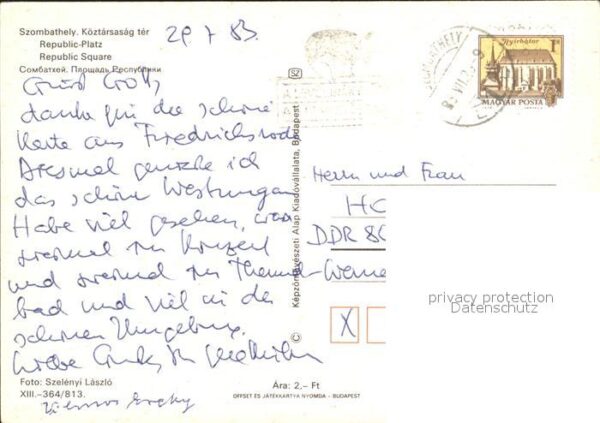 Szombathely. Köztársaság tér
Republic-Platz
Republic Square
Сомбатхей. Площадь Республики
29 7 83.
Grüß Gott,
danke für die schöne
Karte aus Friedrichroda
Diesmal genieße ich
das schöne Westungarn
Habe viel gesehen, war
zweimal im Konzert
und zweimal im Thermal-
bad und viel in der
schönen Umgebung.
Liebe
Foto: Szelényi László
XIII.–364/813.
Vilmos
Képzőművészeti Alap Kiadóvállalata, Budapest
©
Ára: 2,– Ft
OFFSET ÉS JÁTÉKKÁRTYA NYOMDA - BUDAPEST
Nyírbátor
1 Ft
MAGYAR POSTA
Herrn und Frau
HO
DDR 80
Werne
X
privacy protection
Datenschutz